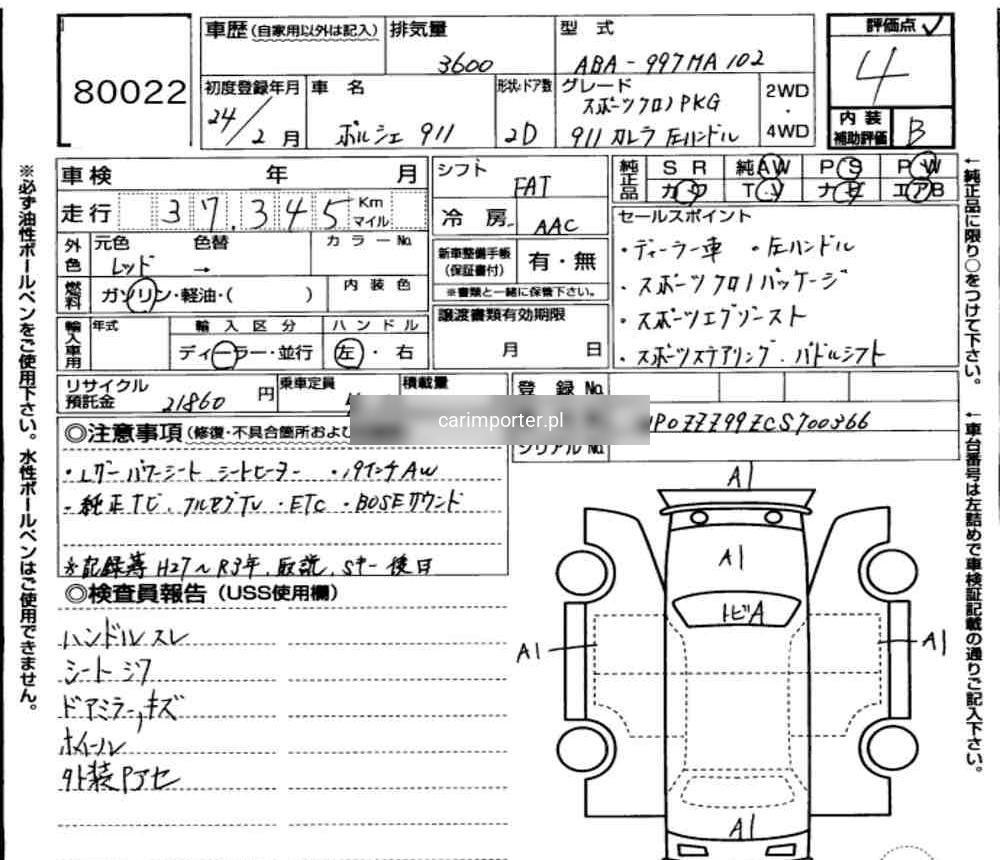 80022
車歴 (自家用以外は記入)
排気量
3600
型 式
ABA-997MA102
初度登録年月
24/2月
車 名
ポルシェ 911
形状・ドア数
2D
グレード
スポーツクロノPKG
911 カレラ 左ハンドル
2WD
・
4WD
評価点
4
内 装
補助評価
B
車検 年 月
走行 37.345 Km
マイル
外色
元色 色替 カラーNo.
レッド →
燃料
ガソリン・軽油・( )
内 装 色
輸入車用
年式
輸 入 区 分
ディーラー・並行
ハ ン ド ル
左・右
シフト
FAT
冷 房
AAC
新車整備手帳
(保証書付)
有・無
※書類と一緒に保管下さい。
譲渡書類有効期限
月 日
純正品
S R 純AW P S P W
カワ T V ナビ エアB
セールスポイント
・ディーラー車 ・左ハンドル
・スポーツクロノパッケージ
・スポーツエグゾースト
・スポーツステアリング、パドルシフト
リサイクル
預託金
21860 円
乗車定員
積載量
登 録 No.
WP0ZZZ99ZCS700366
シリアル No.
carimporter.pl
◎注意事項 (修復・不具合箇所およ
・レザーパワーシート シートヒーター ・19インチAW
・純正TC、フルセグTV ・ETC ・BOSEサウンド
※記録簿 H27〜R3年、取説、Sキー後日
◎検査員報告 (USS使用欄)
ハンドルスレ
シートシワ
ドアミラー、キズ
ホイール
外装Pアセ
A1
A1
トビA
A1
A1
A1
※必ず油性ボールペンをご使用下さい。水性ボールペンはご使用できません。
←純正品に限り○をつけて下さい。
←車台番号は左詰めで車検証記載の通りご記入下さい。